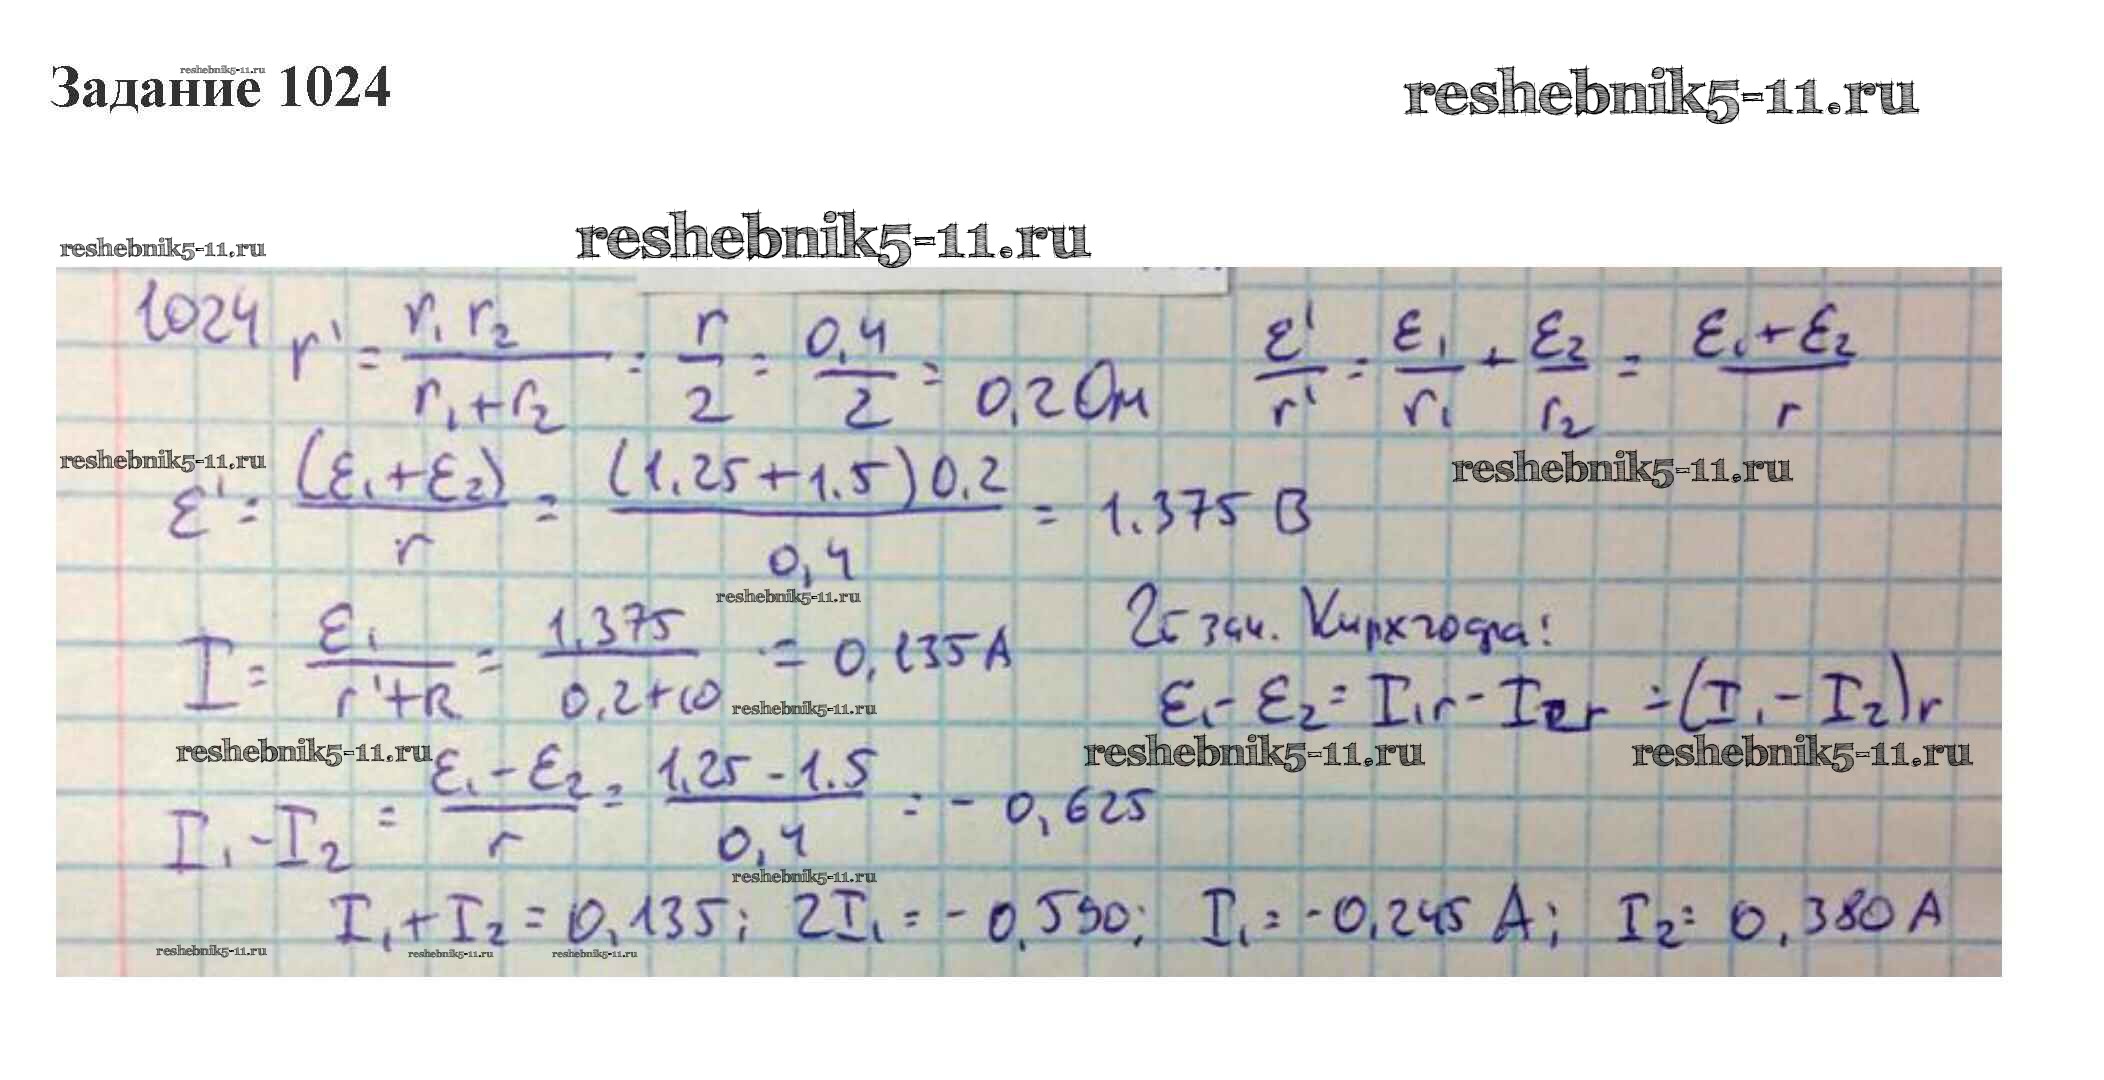 Задание 1024
reshebnik5-11.ru
reshebnik5-11.ru
reshebnik5-11.ru
reshebnik5-11.ru
1024 r' = r₁ r₂ / (r₁ + r₂) = r / 2 = 0,4 / 2 = 0,2 Ом   ε' / r' = ε₁ / r₁ + ε₂ / r₂ = (ε₁ + ε₂) / r
reshebnik5-11.ru
reshebnik5-11.ru
ε' = (ε₁ + ε₂) / r = (1.25 + 1.5) 0,2 / 0,4 = 1.375 В
reshebnik5-11.ru
I = ε₁ / (r' + R) = 1,375 / (0,2 + 10) = 0,135 A   2й зак. Кирхгофа:
ε₁ - ε₂ = I₁r - I₂r = (I₁ - I₂)r
reshebnik5-11.ru
reshebnik5-11.ru
reshebnik5-11.ru
reshebnik5-11.ru
I₁ - I₂ = (ε₁ - ε₂) / r = (1,25 - 1.5) / 0,4 = - 0,625
reshebnik5-11.ru
I₁ + I₂ = 0,135; 2I₁ = - 0,590; I₁ = - 0,245 A; I₂ = 0,380 A
reshebnik5-11.ru
reshebnik5-11.ru
reshebnik5-11.ru